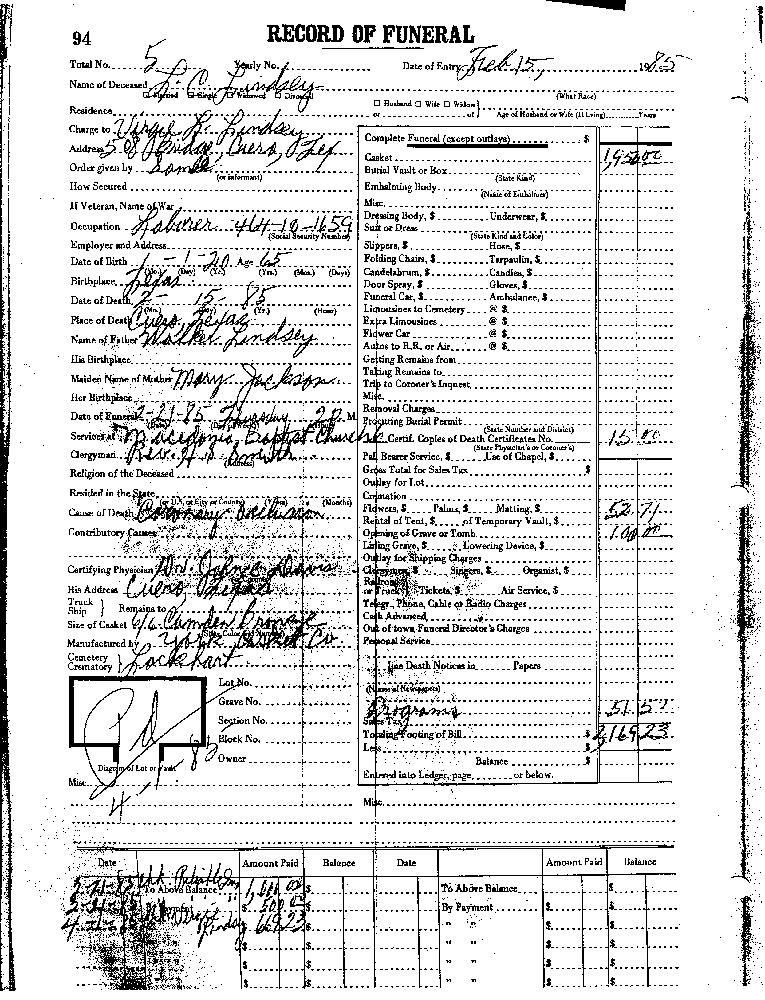 94
RECORD OF FUNERAL
Total No. 5 Yearly No. Date of Entry Feb 15, 1985
Name of Deceased L. C. Lindsey
Married Single Widowed Divorced (What Race)
Husband Wife Widow
Residence or of Age of Husband or Wife (If Living) Years
Charge to Virgil L. Lindsey
Address Cuero, Tex
Order given by Same
(or informant)
How Secured
If Veteran, Name of War
Occupation Laborer 464-10-1659
(Social Security Number)
Employer and Address
Date of Birth 1-1-20 Age 65
(Mo.) (Day) (Yr.) (Yrs.) (Mos.) (Days)
Birthplace Texas
Date of Death 2-15-85
(Mo.) (Yr.) (Hour)
Place of Death Cuero, Texas
Name of Father Walker Lindsey
His Birthplace
Maiden Name of Mother Mary Jackson
Her Birthplace
Date of Funeral 2-21-85 Thursday 2 P. M.
Services at Macedonia Baptist Church
Clergyman Rev. H. S. Smith
(Address)
Religion of the Deceased
Resided in the State
(or U.S. or City or County) (Yrs.) (Months)
Cause of Death Coronary Occlusion
Contributory Causes
Certifying Physician Dr. Davis
His Address Cuero, Texas
Truck
Ship Remains to
Size of Casket 6/6 Camden Bronze
Manufactured by York Casket Co
Cemetery
Crematory Lockhart
Lot No.
Grave No.
Section No.
Block No.
Owner
Diagram of Lot or Vault
Pd
Misc.
Complete Funeral (except outlays) $
Casket 1,950.00
Burial Vault or Box
(State Kind)
Embalming Body
(Name of Embalmer)
Misc.
Dressing Body, $ Underwear, $
Suit or Dress
(State Kind and Color)
Slippers, $ Hose, $
Folding Chairs, $ Tarpaulin, $
Candelabrum, $ Candles, $
Door Spray, $ Gloves, $
Funeral Car, $ Ambulance, $
Limousines to Cemetery @ $
Extra Limousines @ $
Flower Car @ $
Autos to R.R. or Air @ $
Getting Remains from
Taking Remains to
Trip to Coroner's Inquest
Misc.
Removal Charges
Procuring Burial Permit
(State Number and District)
Certif. Copies of Death Certificates No. 15.00
(State Physician's or Coroner's)
Pall Bearer Service, $ Use of Chapel, $
Gross Total for Sales Tax $
Outlay for Lot
Cremation
Flowers, $ Palms, $ Matting, $ 52.71
Rental of Tent, $ of Temporary Vault, $
Opening of Grave or Tomb 100.00
Lining Grave, $ Lowering Device, $
Outlay for Shipping Charges
Clergyman, $ Singers, $ Organist, $
Railroad
or Truck Tickets, $ Air Service, $
Telegr., Phone, Cable or Radio Charges
Cash Advanced
Out of town Funeral Director's Charges
Personal Service
Line Death Notices in Papers
(Name of Newspapers)
Programs 51.52
Sales Tax
Total Footing of Bill $ 2,169.23
Less
Balance $
Entered into Ledger, page or below.
Misc.
Date Amount Paid Balance Date Amount Paid Balance
To Above Balance 1,000.00 $ To Above Balance $
500.00 $ By Payment $
Lindsey 669.23 $ " " $
$ $ " " $
$ $ " " $
$ $ " " $